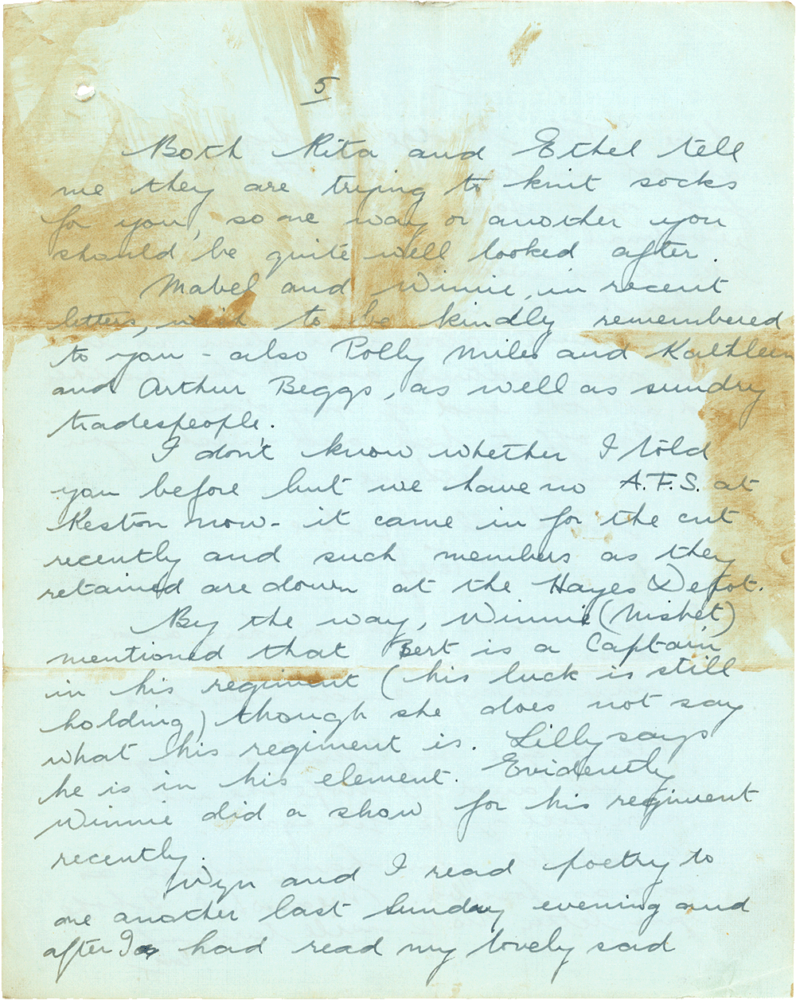 5
Both Rita and Ethel tell
me they are trying to knit socks
for you, so one way or another you
should be quite well looked after.
Mabel and Winnie, in recent
letters, wish to be kindly remembered
to you - also Polly Miles and Kathleen
and Arthur Beggs, as well as sundry
tradespeople.
I don't know whether I told
you before but we have no A.F.S. at
Keston now - it came in for the cut
recently and such members as they
retained are down at the Hayes Depot.
By the way, Winnie (Nisbet)
mentioned that Bert is a Captain
in his regiment (his luck is still
holding) though she does not say
what his regiment is. Lilly says
he is in his element. Evidently
Winnie did a show for his regiment
recently.
Wyn and I read poetry to
one another last Sunday evening and
after I had read my lovely sad